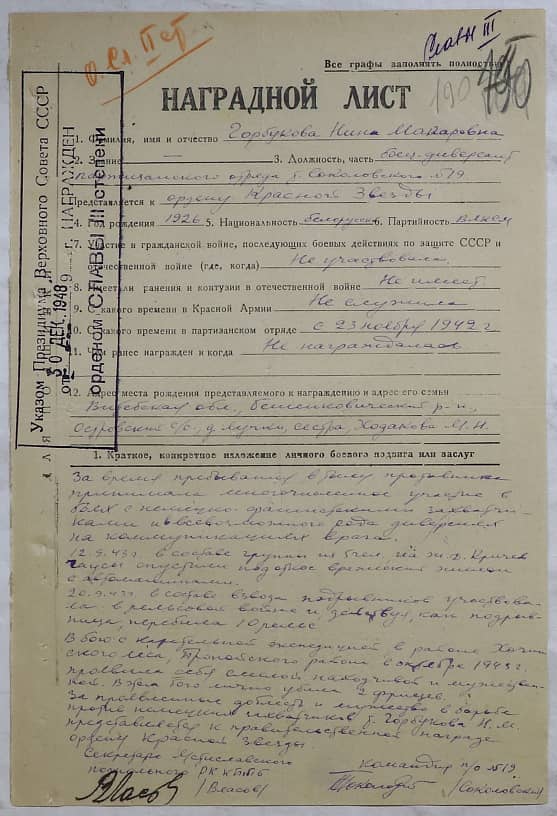 о. Сл. III ст
Славы III
190
Все графы заполнять полностью
НАГРАДНОЙ ЛИСТ
1. Фамилия, имя и отчество Горбукова Нина Макаровна
2. Звание — 3. Должность, часть боец-диверсант
партизанского отряда т. Соколовского №19
Представляется к ордену Красной Звезды
4. Год рождения 1926 5. Национальность белоруска 6. Партийность ВЛКСМ
7. Участие в гражданской войне, последующих боевых действиях по защите СССР и
отечественной войне (где, когда) Не участвовала
8. Имеет ли ранения и контузии в отечественной войне Не имеет
9. С какого времени в Красной Армии Не служила
10. С какого времени в партизанском отряде с 23 ноября 1942 г
11. Чем ранее награжден и когда Не награждалась
12. Адрес места рождения представляемого к награждению и адрес его семьи
Витебская обл., Бешенковический р-н,
Островский с/с, д. Мучки, сестра, Ходакова М. Н.
Указом Президиума Верховного Совета СССР
от 30 ДЕК 1948 г. НАГРАЖДЕН
орденом СЛАВЫ III степени
1. Краткое, конкретное изложение личного боевого подвига или заслуг
За время пребывания в тылу противника
принимала многочисленное участие в
боях с немецко-фашистскими захватчи-
ками и всевозможного рода диверсиях
на коммуникациях врага.
12.9.43 г. в составе группы из 6 чел. на ж.д. Кричев
чаусы опустили под откос вражеский эшелон
с автомашинами.
20.9.43 г. в составе взвода подрывников участвова-
ла в рельсовой войне и действуя, как подрыв-
ница, перебила 10 рельс
В бою с карательной экспедицией в районе
ского леса, Пропойского района в октябре 1943 г.
проявила себя смелой находчивой и мужествен-
ной. В этом бою лично убила 2 фрицев.
За проявленные доблесть и мужество в борьбе
против немецких захватчиков т. Горбукова Н. М.
представляется к правительственной награде
ордену Красной Звезды
Секретарь Мстиславского
подпольного РК КП(б)Б
(Власов)
Командир п/о №19
(Соколовский)